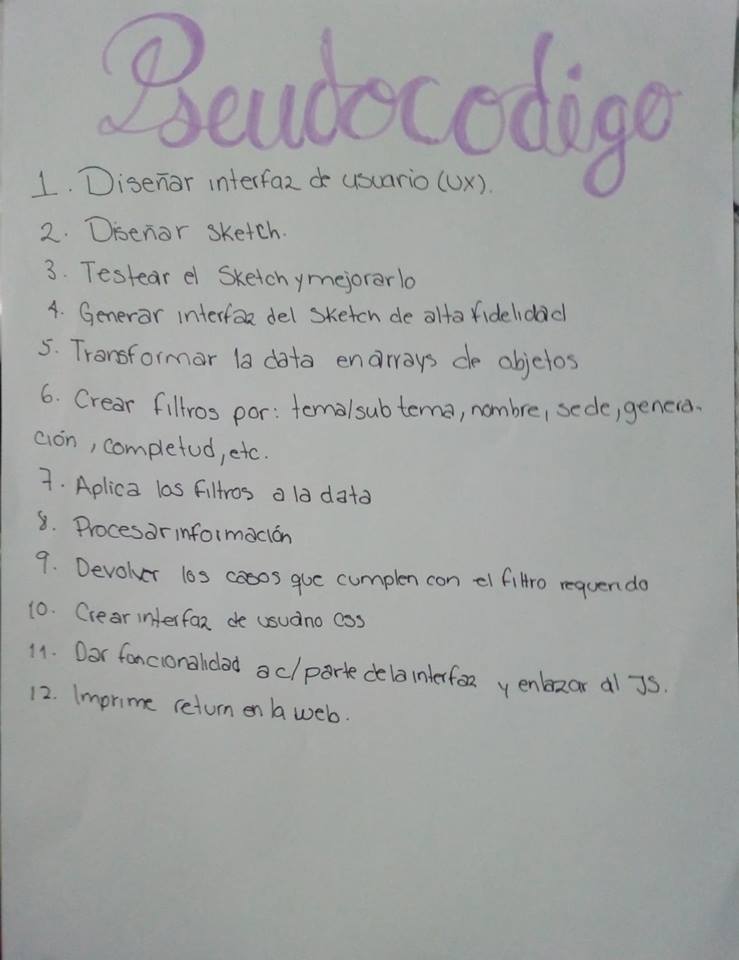 Pseudocodigo
1. Diseñar interfaz de usuario (UX).
2. Diseñar sketch.
3. Testear el Sketch y mejorarlo
4. Generar interfaz del sketch de alta fidelidad
5. Transformar la data en arrays de objetos
6. Crear filtros por: tema/sub tema, nombre, sede, genera-
ción, completud, etc.
7. Aplica los filtros a la data
8. Procesar información
9. Devolver los casos que cumplen con el filtro requerido
10. Crear interfaz de usuario CSS
11. Dar funcionalidad a c/ parte de la interfaz y enlazar al JS.
12. Imprime return en la web.